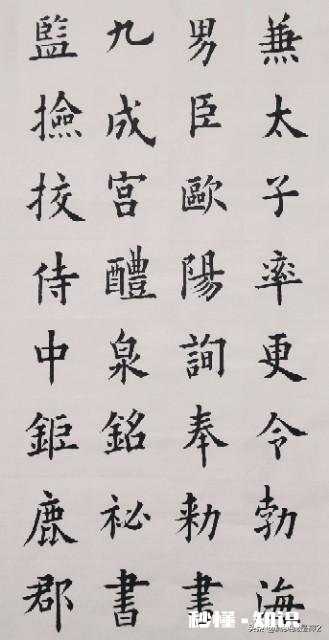 兼太子率更令勃海
男臣歐陽詢奉勑書
九成宮醴泉銘祕書
監撿挍侍中鉅鹿郡
秒懂·知识